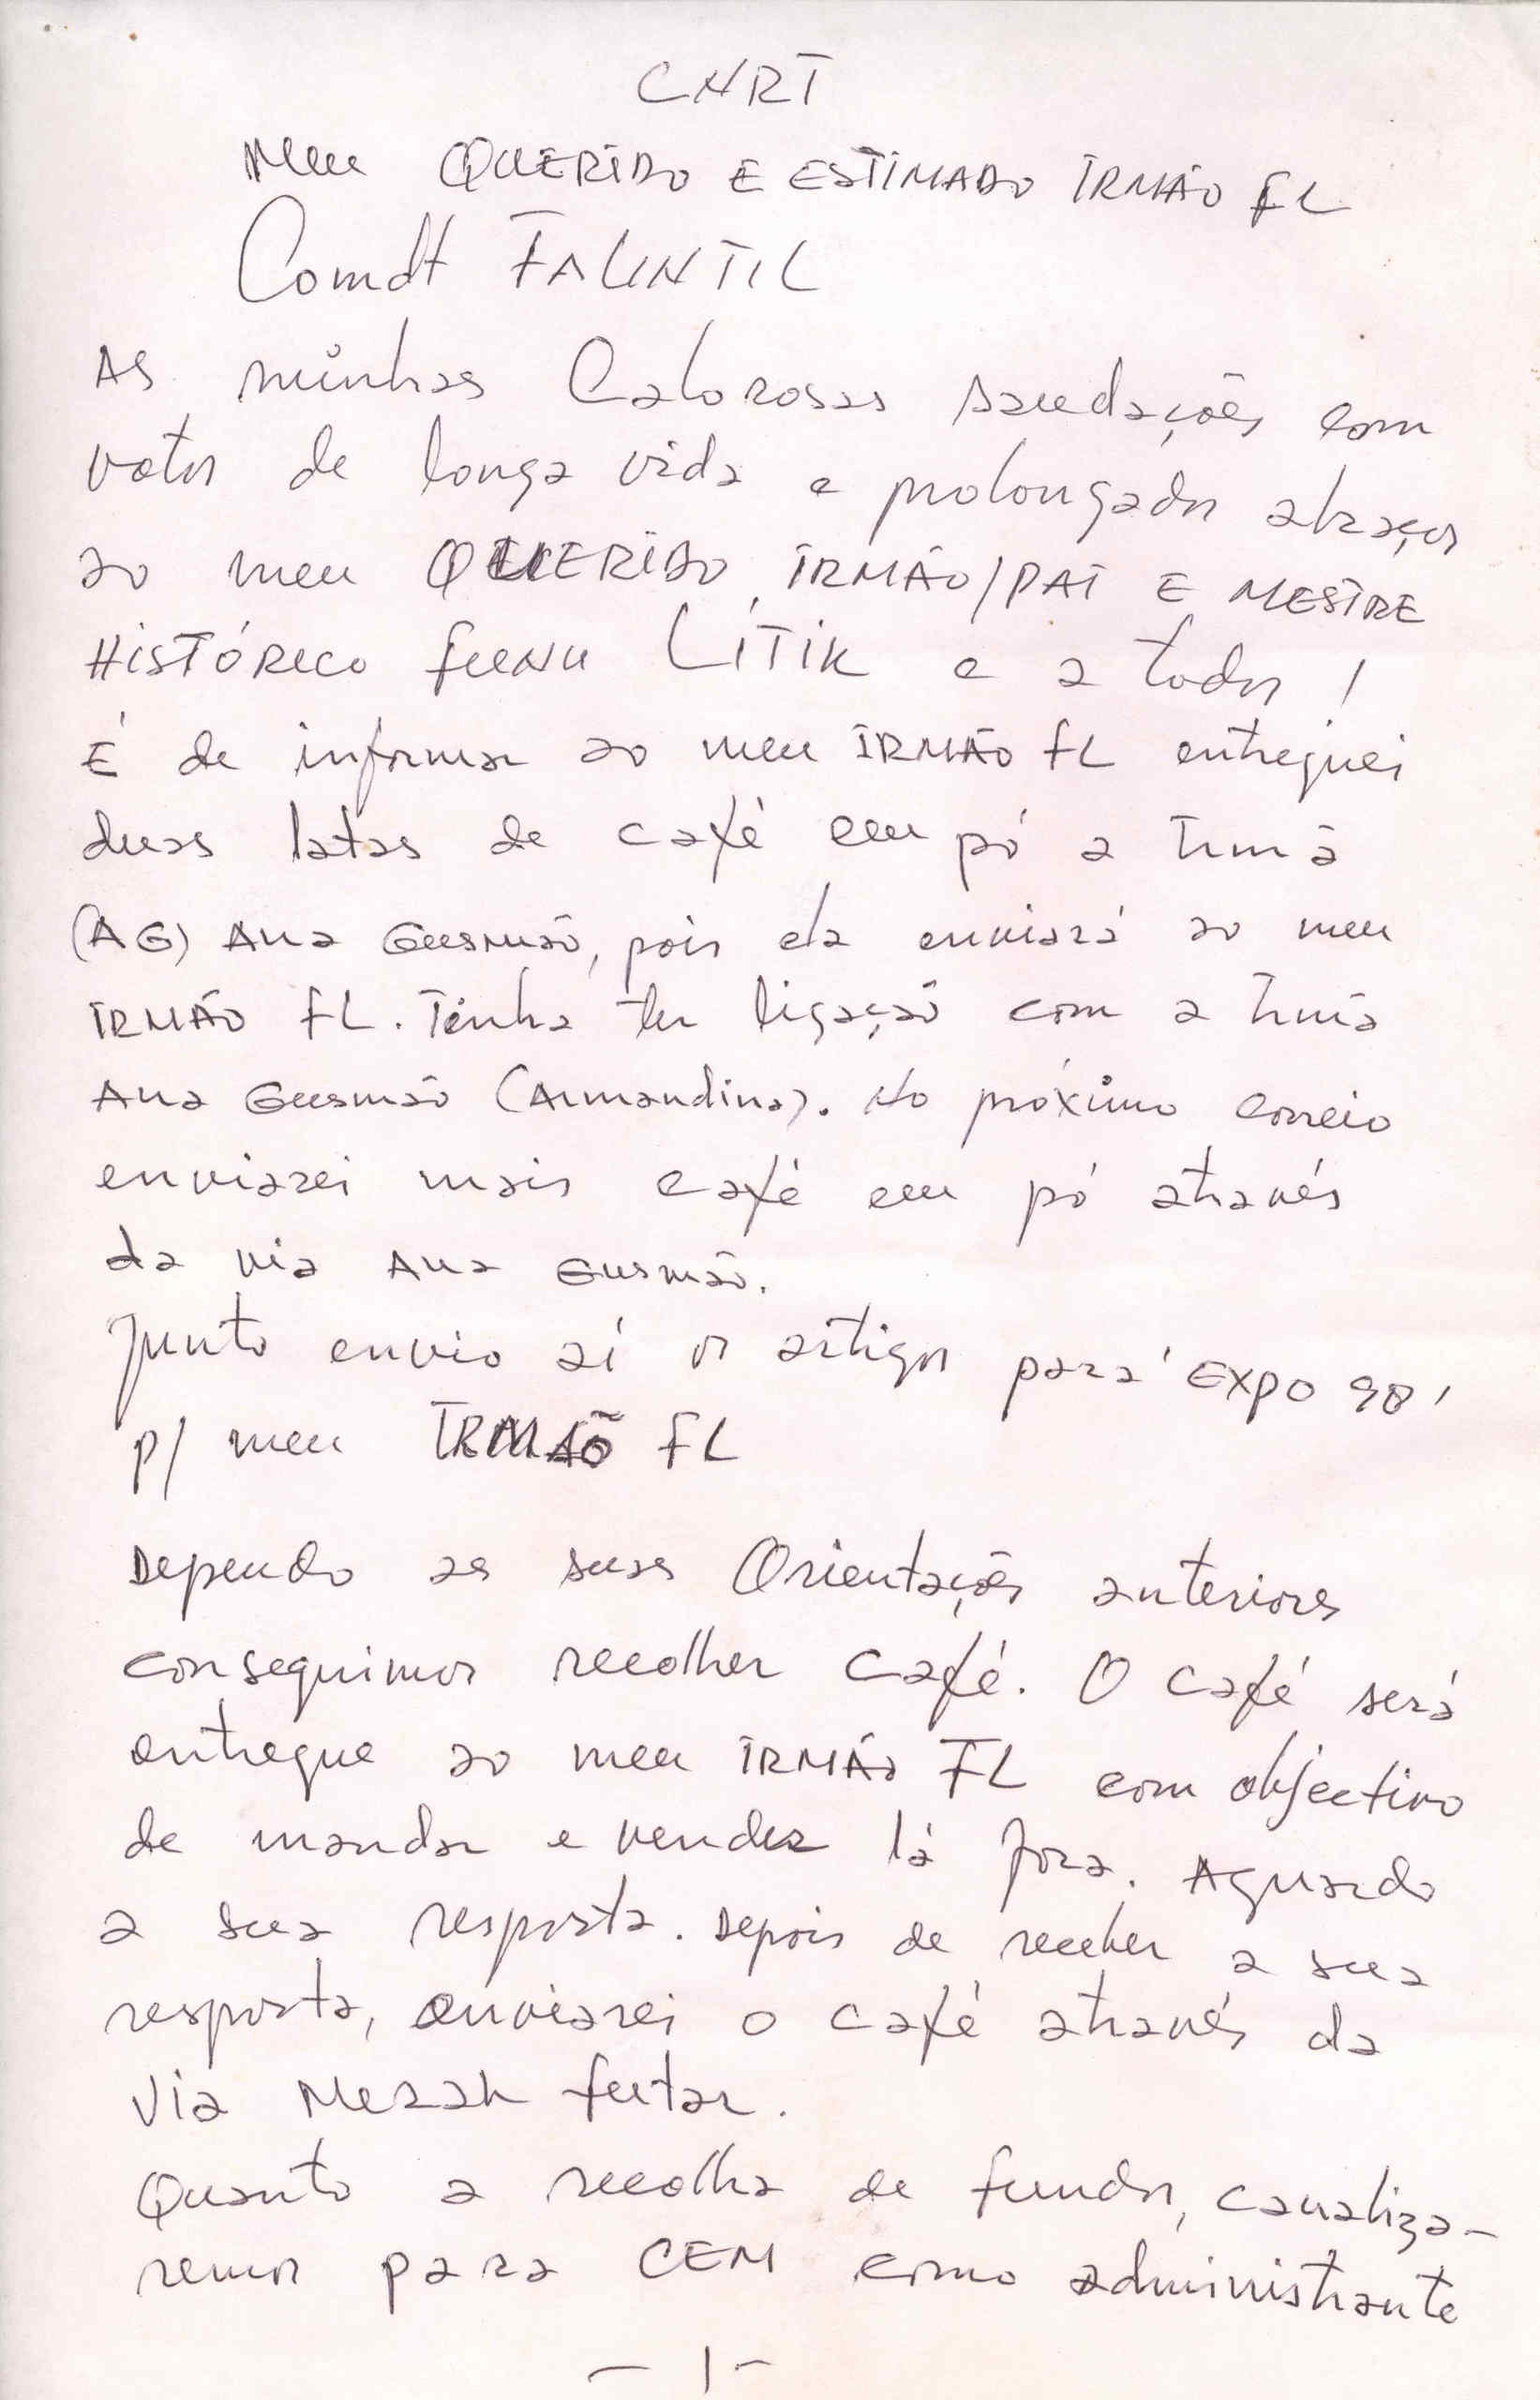 CNRT
Meu QUERIDO E ESTIMADO IRMÃO FL
Comdt FALINTIL
As minhas Calorosas saudações com
votos de longa vida e prolongados abraços
ao meu QUERIDO IRMÃO/PAI E MESTRE
HISTÓRICO fuNu LITIK e a todos!
É de informar ao meu IRMÃO FL entreguei
duas latas de café em pó a Irmã
(AG) Ana Gusmão, pois ela enviará ao meu
IRMÃO FL. Tenha ter ligação com a Irmã
Ana Gusmão (Armandina). No próximo correio
enviarei mais café em pó através
da via Ana Gusmão.
Junto envio aí os artigos para EXPO 98'
p/ meu IRMÃO FL
Dependo as suas Orientações anteriores
conseguimos recolher café. O café será
entregue ao meu IRMÃO FL com objectivo
de mandar e vender lá fora. Aguardo
a sua resposta. Depois de receber a sua
resposta, enviarei o café através da
via Merak futar.
Quanto a recolha de fundos, canaliza-
remos para CEM como administrante
- 1 -